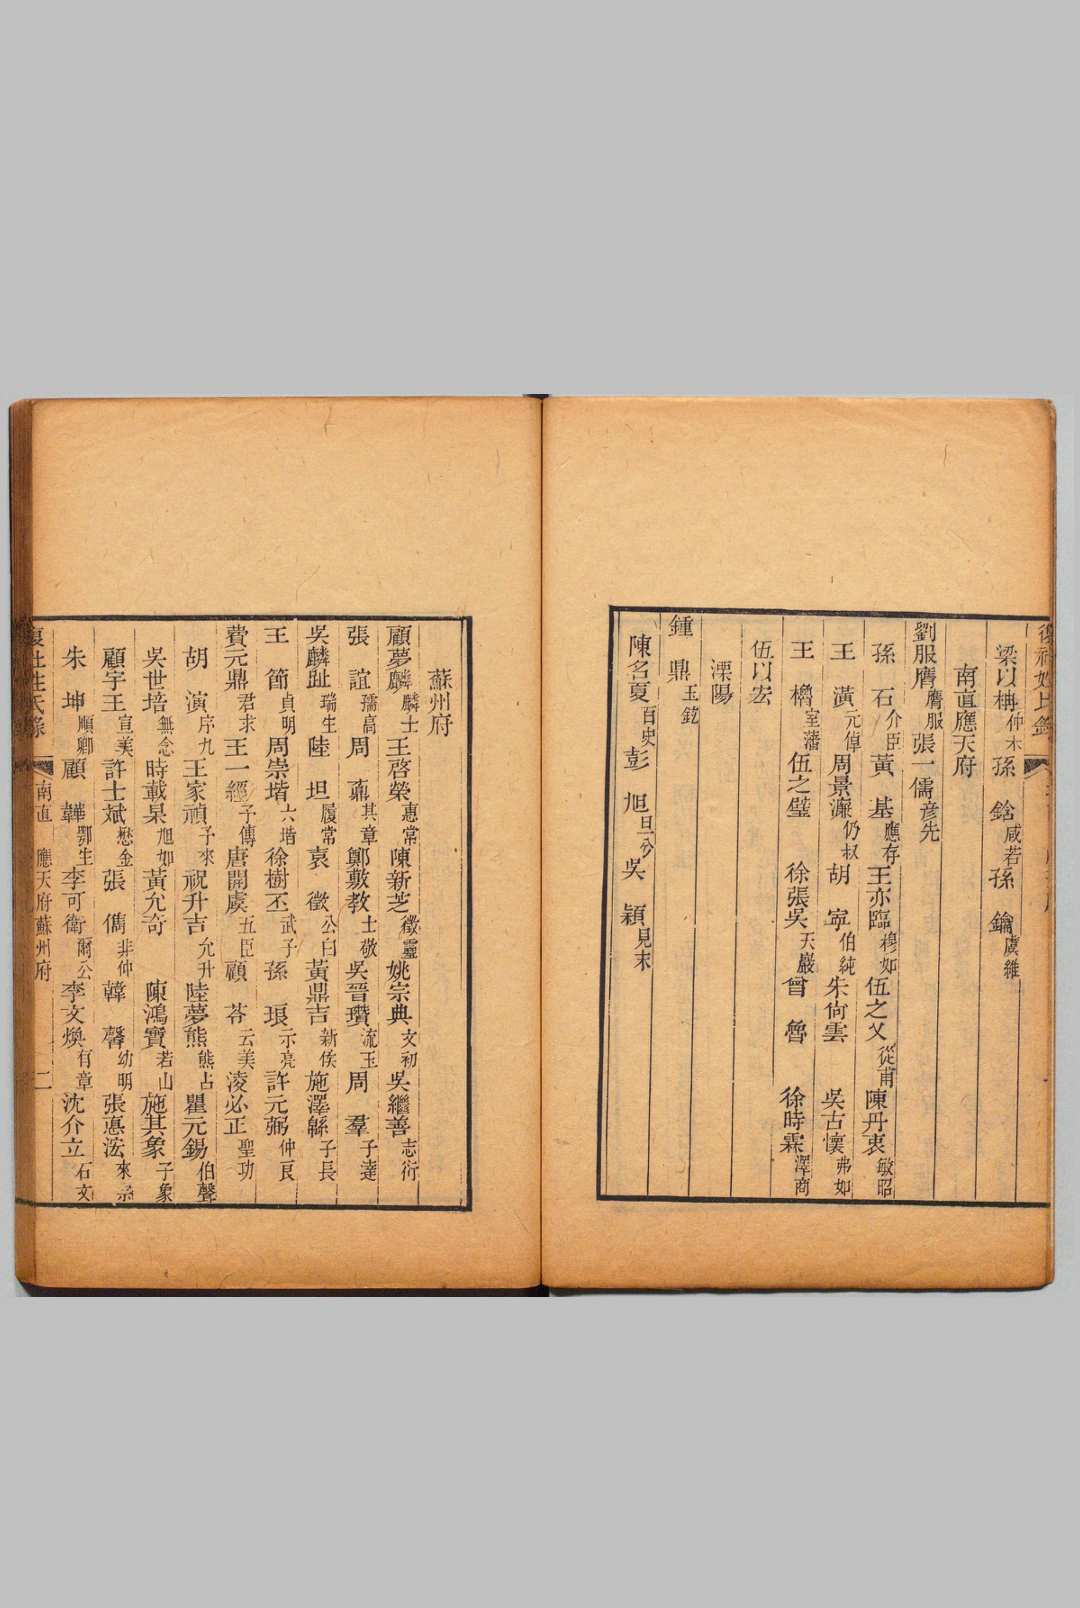 梁以柟仲木孫　鋡咸若孫　鑰虞維
南直應天府
劉服膺膺服張一儒彥先
孫　石介臣黃　基應存王亦臨穆如伍之乂從甫陳丹衷敏昭
王　潢元倬周景濂仍叔胡　寧伯純朱尙雲　吳古懷弗如
王　櫓室藩伍之璧　徐張吳天巖曾　魯　徐時霖澤商
伍以宏
溧陽
鍾　鼎玉鉉
陳名夏百史彭　旭旦兮吳　穎見末
蘇州府
顧夢麟麟士王啓榮惠常陳新芝徵靈姚宗典文初吳繼善志衍
張　誼孺高周　鼐其章鄭敷教士敬吳晉瓚流玉周　羣子達
吳麟趾瑞生陸　坦履常袁　徵公白黃鼎吉新侯施澤緜子長
王　節貞明周崇堦六堦徐樹丕武子孫　琅示亮許元弼仲良
費元鼎君求王一經子傳唐開虞五臣顧　苓云美淩必正聖功
胡　演序九王家禎子來祝升吉允升陸夢熊熊占瞿元錫伯聲
吳世培無念時載杲旭如黃允奇　陳鴻寶若山施其象子象
顧宇王宣美許士斌懋金張　儁非仲韓　馨幼明張惪浤來
朱　坤順卿顧　韡鄂生李可衛爾公李文煥有章沈介立石文
復社姓氏錄　南直　應天府蘇州府　二